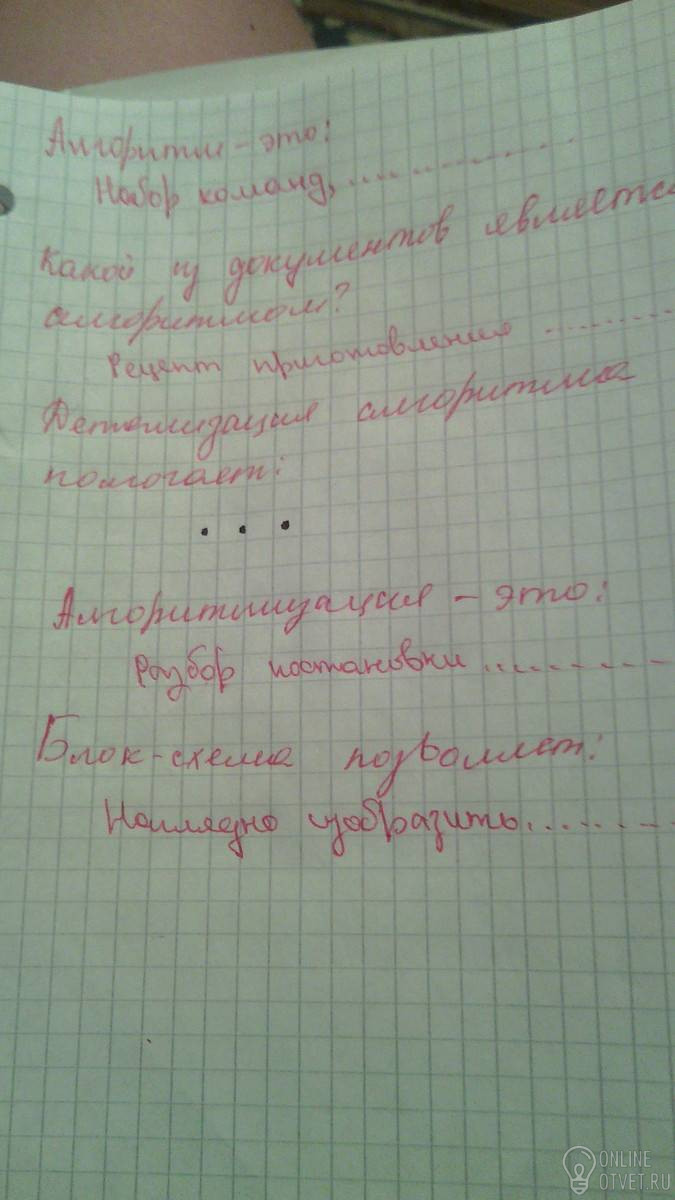 Алгоритм - это:
Набор команд, ..............
Какой из документов является
алгоритмом?
Рецепт приготовления ..........
Детализация алгоритма
помогает:
. . .
Алгоритмизация - это:
Разбор постановки ..........
Блок-схема позволяет:
Наглядно изобразить..........
ONLINE
OTVET.RU